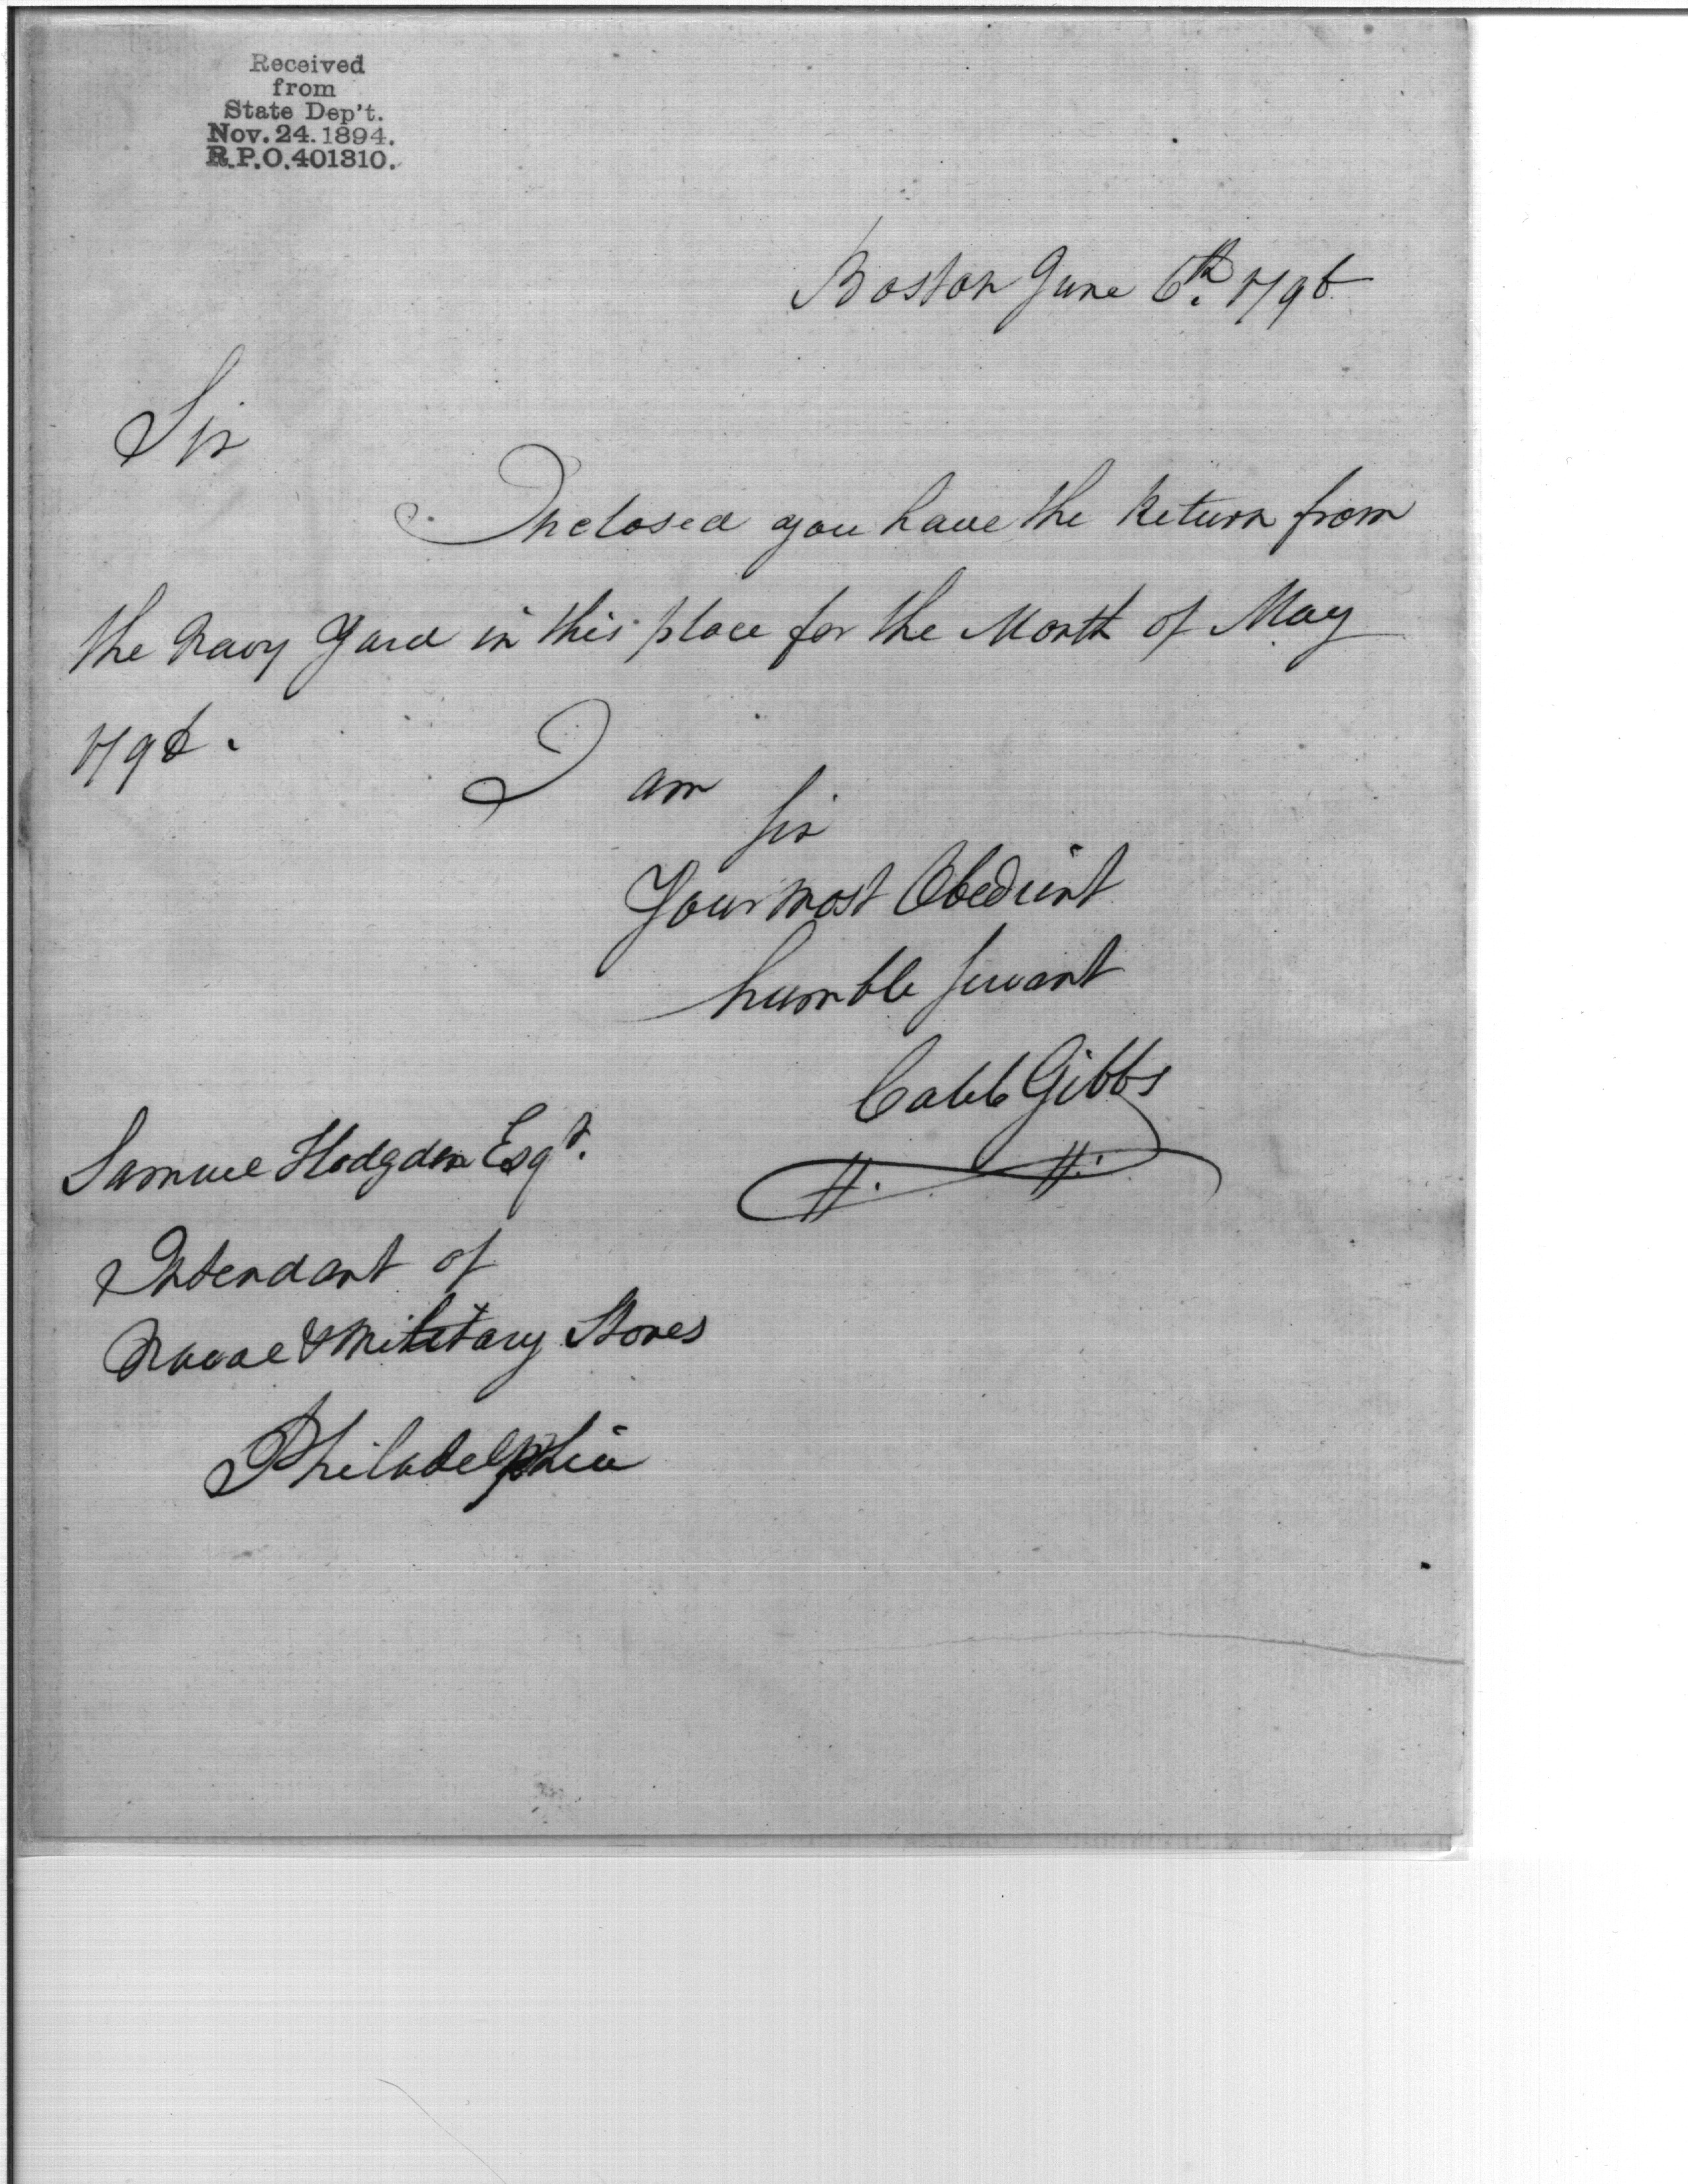 Received
from
State Dep't.
Nov. 24. 1894.
R.P.O. 401310.
Boston June 6th. 1796
Sir
Inclosed you have the Return from
the Navy Yard in this place for the Month of May
1796.
I am
Sir
Your most Obedient
humble Servant
Caleb Gibbs
Samuel Hodgden Esqr.
Intendant of
Naval & Military Stores
Philadelphia